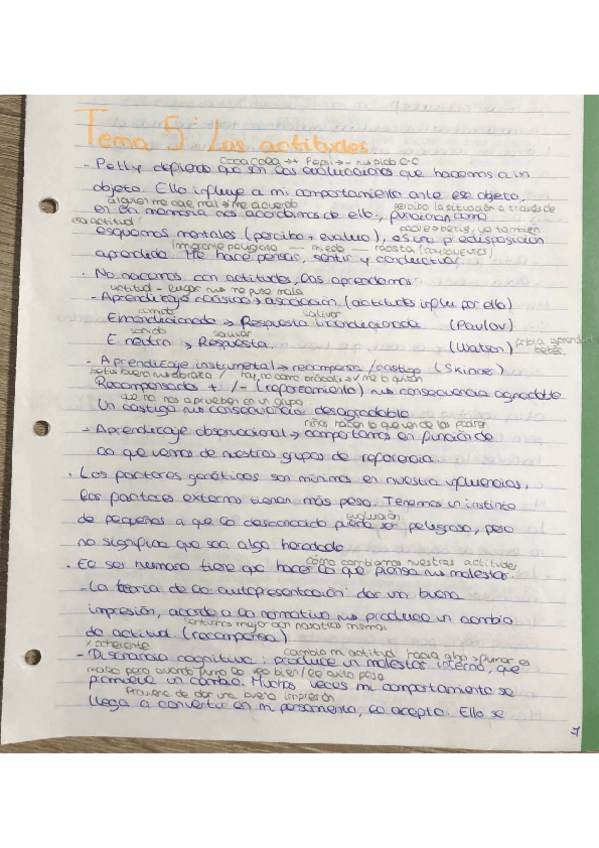 Tema 5: Las actitudes.
Coca Cola ++ Pepsi - → pido C.C
- Petty defiende que son las evaluaciones que hacemos a un
objeto. Ello influye a mi comportamiento ante ese objeto,
alguien me cae mal → me acuerdo percibo la situación a través de
esa actitud
en la memoria nos acordamos de ello, funcionan como
padre → betis, yo también
esquemas mentales (percibo + evaluo), es una predisposición
Inmigrante peligroso — miedo — racista (componentes)
aprendida. Me hace pensar, sentir y conductual.
· No nacemos con actitudes, las aprendemos:
actitud - lugar → me puse mala
- Aprendizaje clásico → asociación. (actitudes influ por ello)
comida salivar
E condicionado → Respuesta incondicionada (Pavlov)
sonido salivar
E neutro → Respuesta. (Watson)
bebés.
- Aprendizaje instrumental → recompensa / castigo (Skinner)
Recompensados + / - (reforzamiento) → consecuencia agradable
que no nos aprueben en un grupo
Un castigo → consecuencia desagradable
niños hacen lo que ven de los padres
- Aprendizaje observacional → comportamos en función de
lo que vemos de nuestros grupos de referencia.
· Los factores genéticos son mínimos en nuestra influencias,
los factores externo tienen más peso. Tenemos un instinto
evaluación
de pequeños a que lo desconocido pueda ser peligroso, pero
no significa que sea algo heredado.
cómo cambiamos nuestras actitudes
· El ser humano tiene que hacer lo que piensa → malestar.
- La teoría de la autopresentación: dar una buena
impresión, acorde a la normativa → produce un cambio
sentirnos mejor con nosotros mismos
de actitud. (recompensa)
coherente cambio mi actitud hacia algo → fumar es
- Disonancia cognitiva: produce un malestar interno, que
malo pero cuanto fumo lo veo bien / le quito peso
promueve un cambio. Muchas veces mi comportamiento se
Proviene de dar una buena impresión
llega a convertir en mi pensamiento, lo acepto. Ello se
1